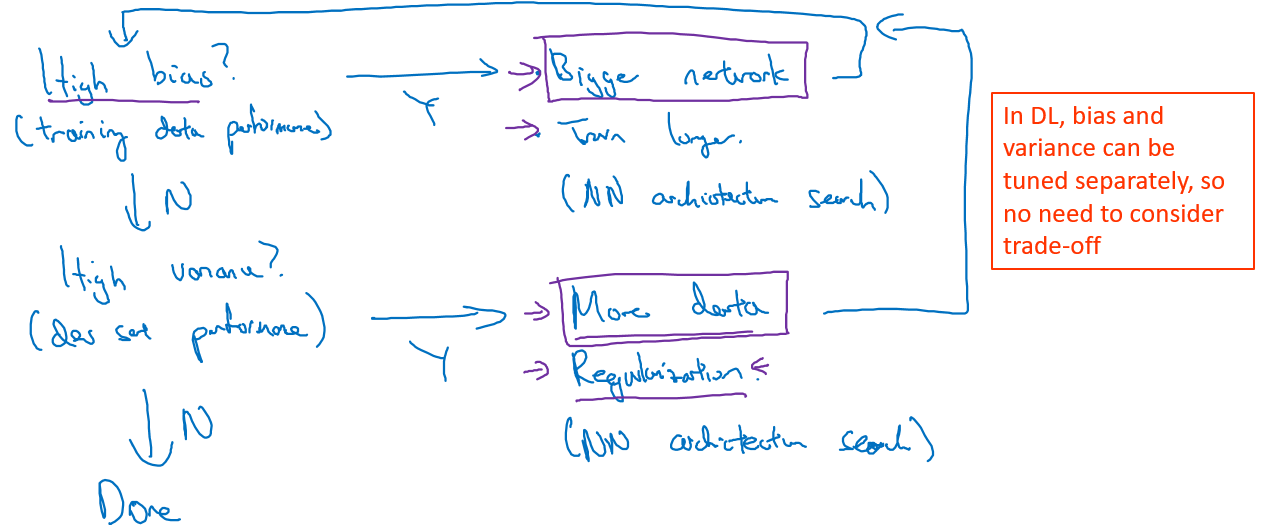 High bias?
(training data performance)
Y
Bigger network
Train longer.
(NN architecture search)
N
High variance?
(dev set performance)
Y
More data
Regularization.
(NN architecture search)
N
Done
In DL, bias and
variance can be
tuned separately, so
no need to consider
trade-off